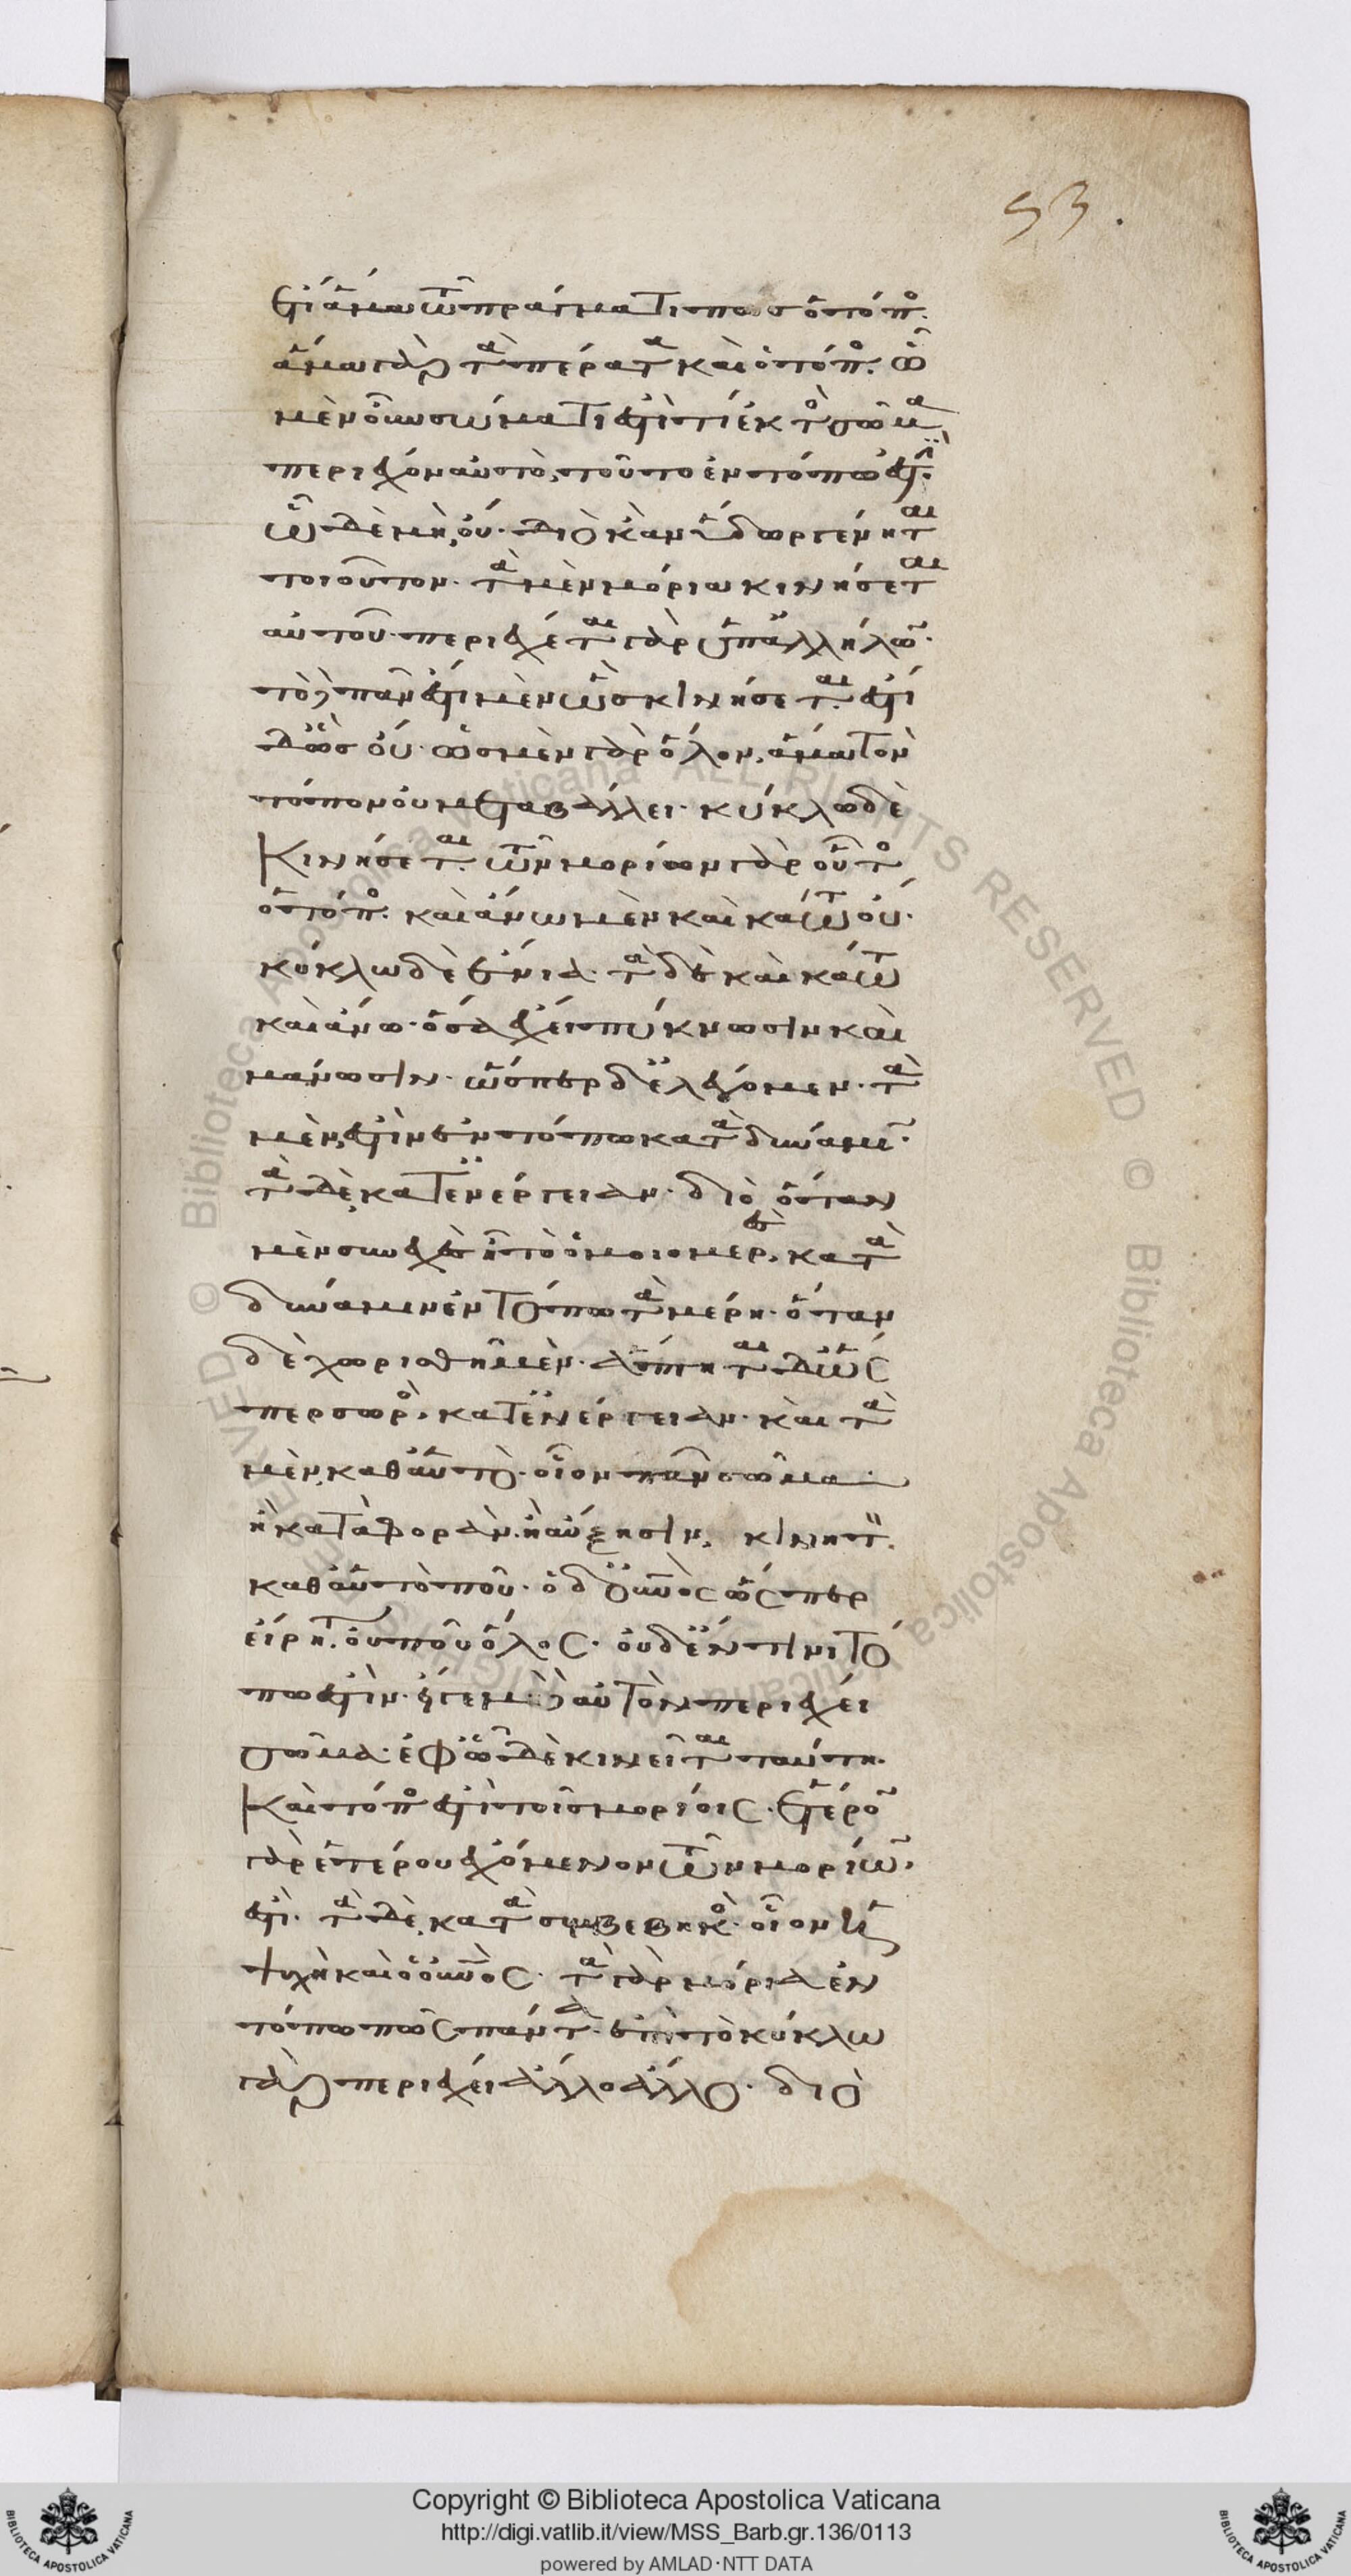 53.
ἔτι ἅμα τῶ πράγματί πως ὁ τόπος.
ἅμα γὰρ τὰ πέρατα καὶ ὁ τόπος. ὧ
μὲν οὖν σώματι ἐστί τι ἐκτὸς σῶμα
περιέχον αὐτὸ, τοῦτο ἐν τόπω ἐστί.
ὧ δὲ μὴ, οὔ. διὸ κἂν ὕδωρ γένηται
τοιοῦτον. τὰ μὲν μόρια κινήσεται
αὐτοῦ. περιέχεται γὰρ ὑπ' ἀλλήλων.
τὸ δὲ πᾶν ἔστι μὲν ὡς κινήσεται. ἔστι
δ' ὡς οὔ. ὡς μὲν γὰρ ὅλον, ἅμα τὸν
τόπον οὐ μεταβάλλει. κύκλω δὲ
κινήσεται. τῶν μορίων γὰρ οὗτος
ὁ τόπος. καὶ ἄνω μὲν καὶ κάτω οὔ.
κύκλω δὲ ἔνια. τὰ δὲ καὶ κάτω
καὶ ἄνω. ὅσα ἔχει πύκνωσιν καὶ
μάνωσιν. ὥσπερ δ' ἐλέχομεν. τὰ
μέν, ἐστιν ἐν τόπω κατὰ δύναμιν.
τὰ δὲ, κατ' ἐνέργειαν. διὸ ὅταν
μὲν συνεχὲς ἦ τὸ ὁμοιομερὲς, κατὰ
δύναμιν ἐν τόπω τὰ μέρη. ὅταν
δὲ χωρισθῆ μὲν. ἅπτηται δ' ὡς
περ σωρὸς, κατ' ἐνέργειαν. καὶ τὰ
μὲν, καθ' αὑτὸ. οἷον πᾶν σῶμα
ἢ κατὰ φορὰν. ἢ αὔξησιν, κινητ.
καθ' αὑτό που. ὁ δ' οὐνος ὥσπερ
εἴρηται. οὔ που ὅλος. οὐδ' ἔν τινι τό
πω ἐστὶν. εἴ γε μηδὲν αὐτὸν περιέχει
σῶμα. ἐφ' ὧ δὲ κινεῖται ταύτη.
καὶ τόπος ἐστὶ τοῖς μορίοις. ἕτερον
γὰρ ἑτέρου ἐχόμενον τῶν μορίων
ἐστί. τὰ δὲ, κατὰ συμβεβηκὸς. οἷον ἡ
ψυχὴ καὶ ὁ οὐνος. τὰ γὰρ μόρια ἐν
τόπω πως πάντα. ἐπὶ τὸ κύκλω
γὰρ περιέχει ἄλλο ἄλλο. διὸ
Copyright © Biblioteca Apostolica Vaticana
http://digi.vatlib.it/view/MSS_Barb.gr.136/0113
powered by AMLAD·NTT DATA